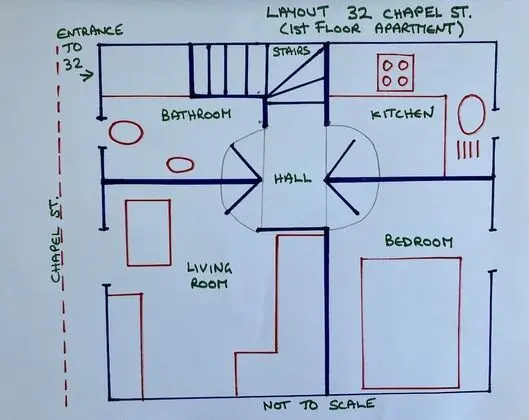 LAYOUT 32 CHAPEL ST.
(1ST FLOOR APARTMENT)
ENTRANCE
TO
32
STAIRS
BATHROOM
KITCHEN
HALL
CHAPEL ST.
LIVING
ROOM
BEDROOM
NOT TO SCALE